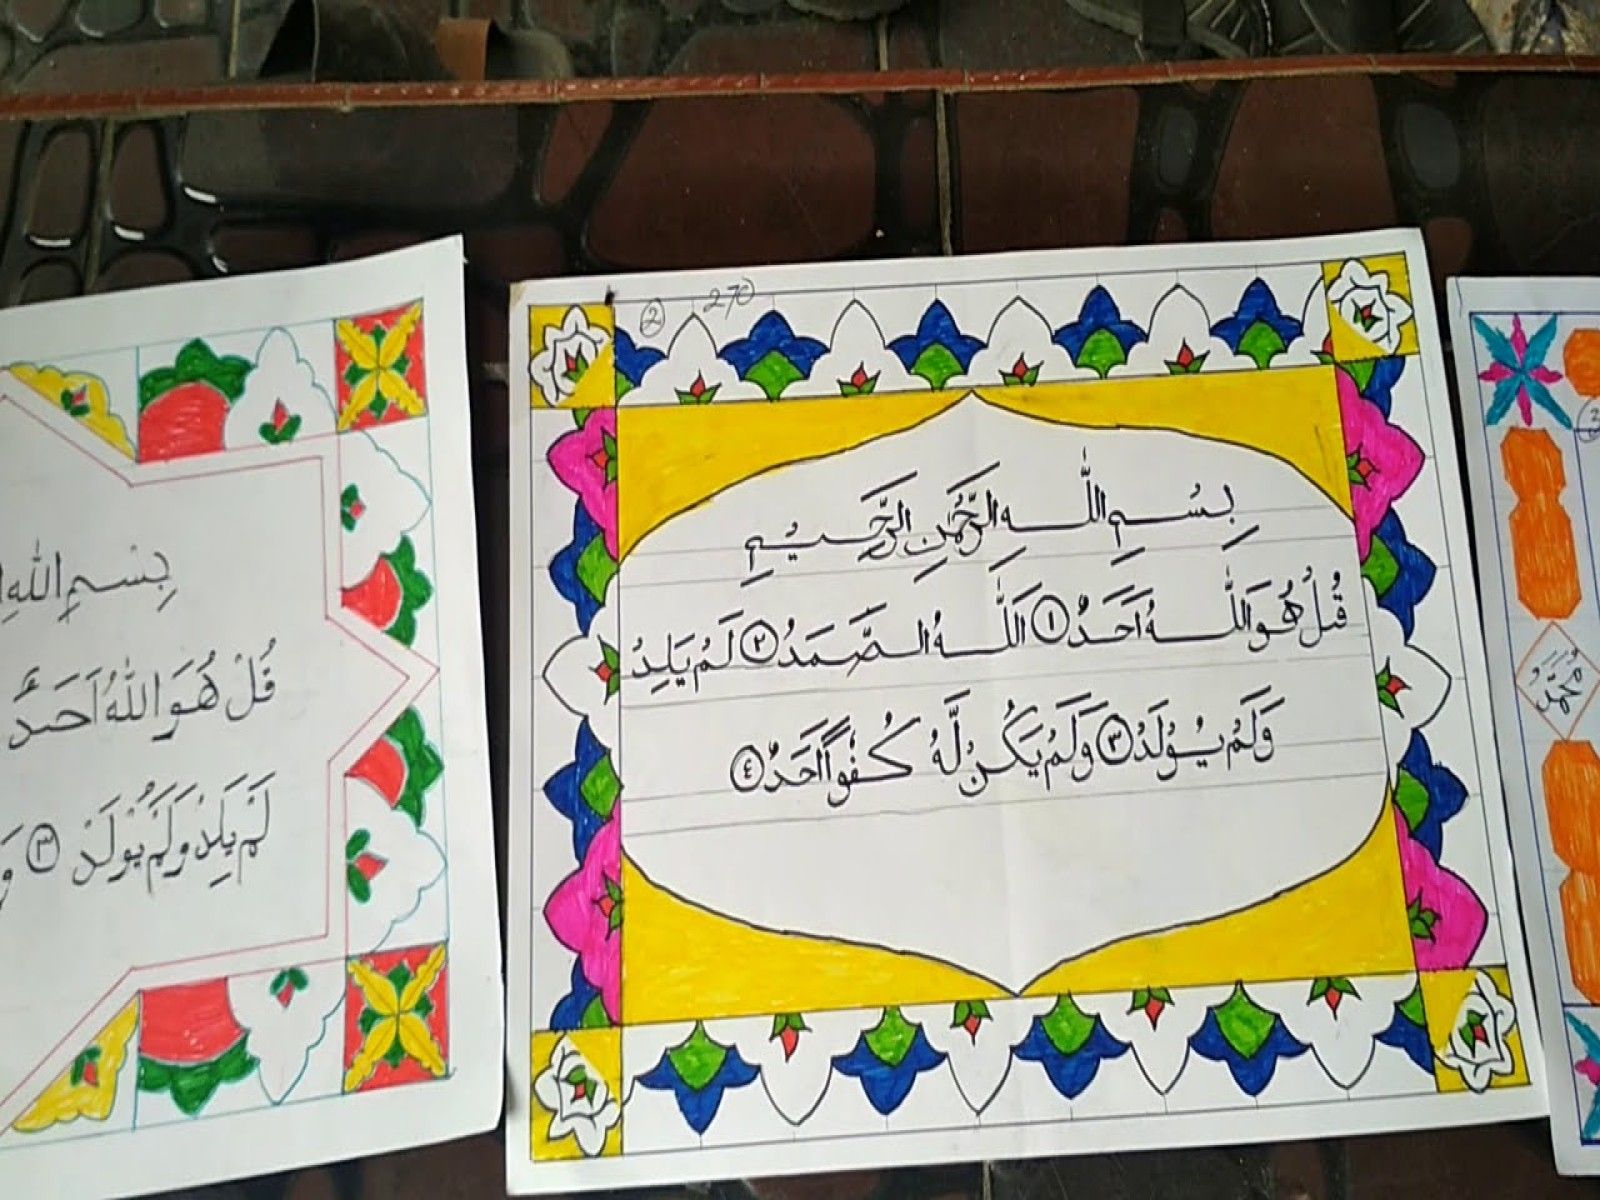 بِسْمِ اللهِ
قُلْ هُوَ اللهُ اَحَدٌ
لَمْ يَلِدْ وَلَمْ يُوْلَدْ ٣ وَ
② 270
بِسْمِ اللّٰهِ الرَّحْمٰنِ الرَّحِيْمِ
قُلْ هُوَ اللّٰهُ اَحَدٌ ١ اَللّٰهُ الصَّمَدُ ٢ لَمْ يَلِدْ
وَلَمْ يُوْلَدْ ٣ وَلَمْ يَكُنْ لَّهُ كُفُوًا اَحَدٌ ٤
مُحَمَّدٌ